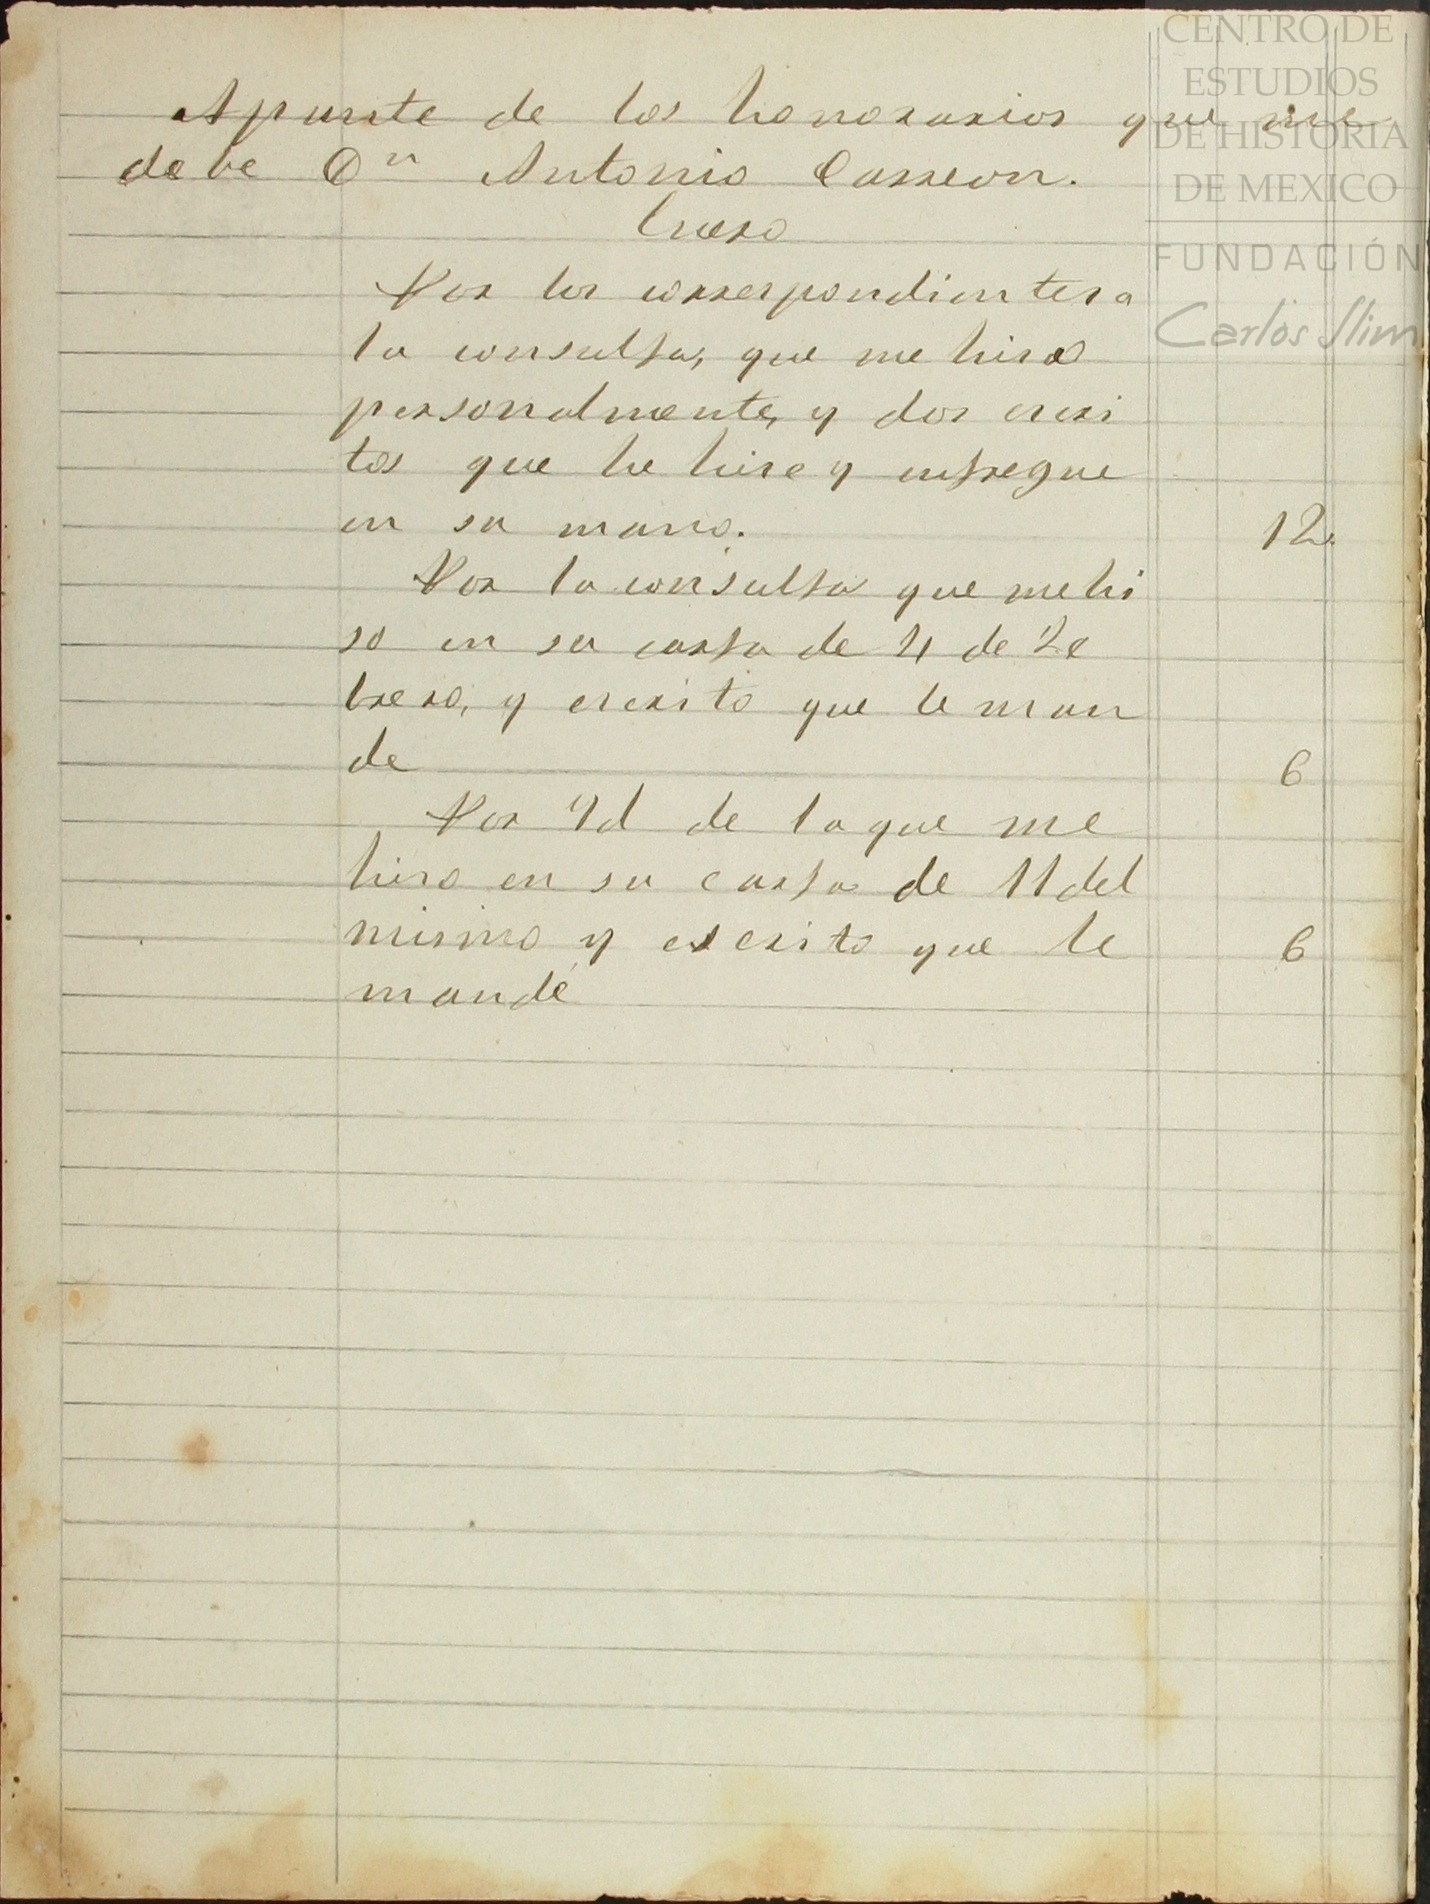 Apunte de los honorarios que me
debe Dn Antonio Carreon.
Enero
Por los correspondientes a
la consulta, que me hiso
personalmente, y dos escri
tos que le hise y entregue
en su mano.
12.
Por la consulta que me hi
so en su carta de 4 de Fe
brero, y escrito que le man
de
6
Por Yd de la que me
hiso en su carta de 11 del
mismo y escrito que le
6
mandé
CENTRO DE
ESTUDIOS
DE HISTORIA
DE MEXICO
FUNDACIÓN
Carlos Slim